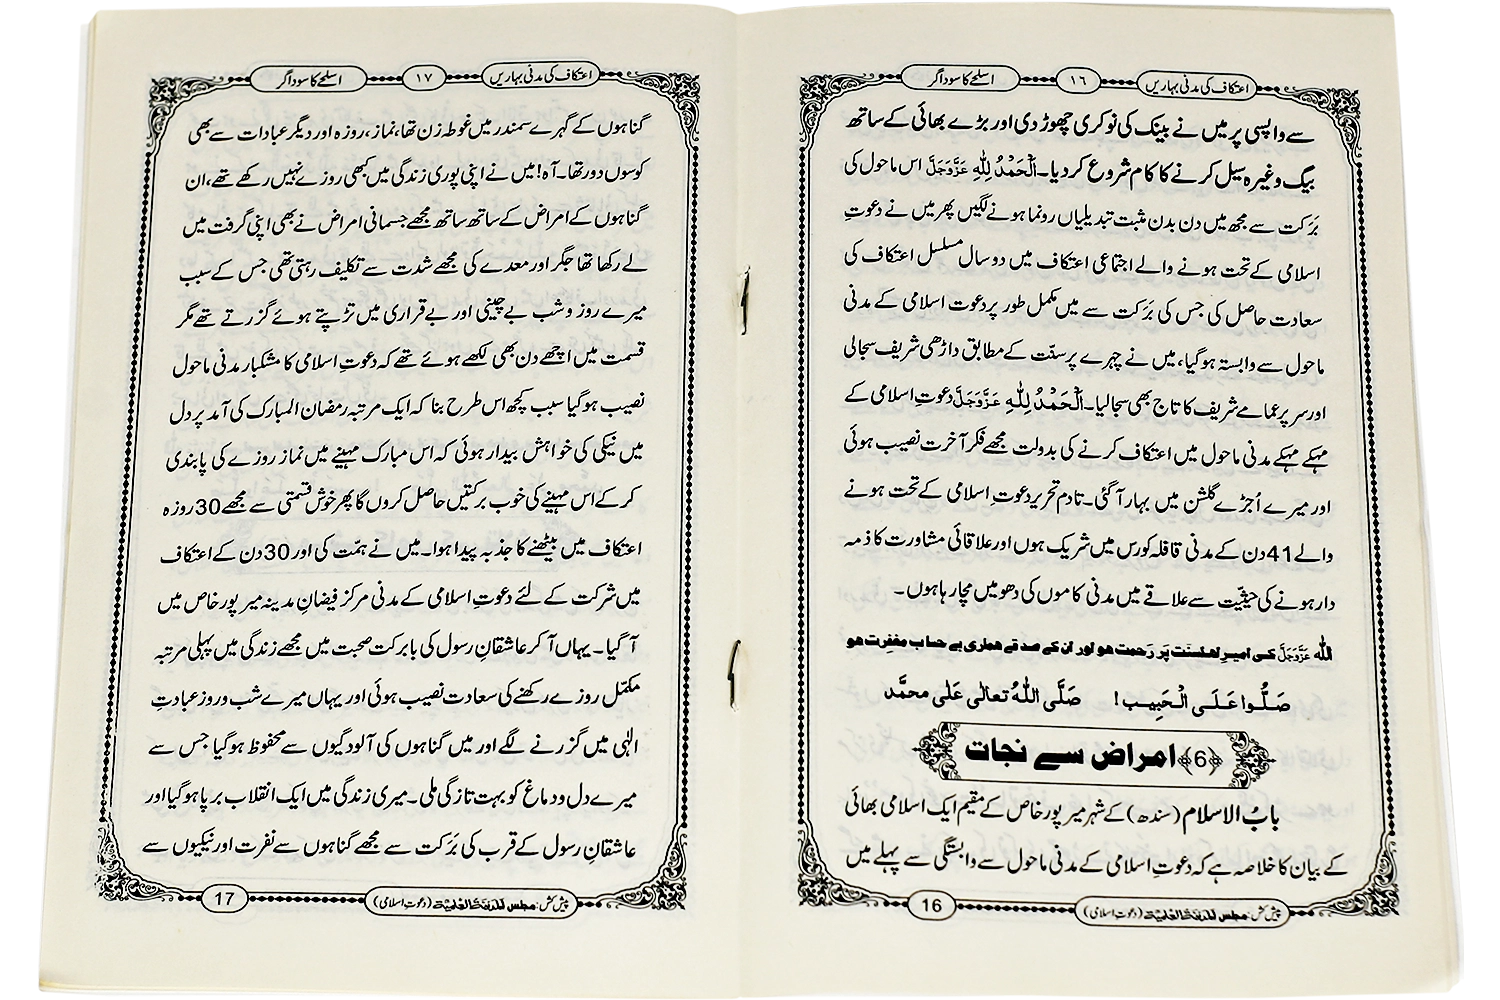 اعتکاف کی مدنی بہاریں
١٦
اسلحے کا سوداگر
سے واپسی پر میں نے بینک کی نوکری چھوڑ دی اور بڑے بھائی کے ساتھ
بیگ وغیرہ سیل کرنے کا کام شروع کر دیا۔ اَلْحَمْدُ لِلّٰہِ عَزَّوَجَلَّ اس ماحول کی
بَرَکت سے مجھ میں دن بدن مثبت تبدیلیاں رونما ہونے لگیں پھر میں نے دعوتِ
اسلامی کے تحت ہونے والے اجتماعی اعتکاف میں دو سال مسلسل اعتکاف کی
سعادت حاصل کی جس کی بَرَکت سے میں مکمل طور پر دعوت اسلامی کے مدنی
ماحول سے وابستہ ہو گیا، میں نے چہرے پر سنّت کے مطابق داڑھی شریف سجالی
اور سر پر عمامے شریف کا تاج بھی سجا لیا۔ اَلْحَمْدُ لِلّٰہِ عَزَّوَجَلَّ دعوتِ اسلامی کے
مہکے مہکے مدنی ماحول میں اعتکاف کرنے کی بدولت مجھے فکرِ آخرت نصیب ہوئی
اور میرے اُجڑے گلشن میں بہار آ گئی۔ تادم تحریر دعوتِ اسلامی کے تحت ہونے
والے 41 دن کے مدنی قافلہ کورس میں شریک ہوں اور علاقائی مشاورت کا ذمہ
دار ہونے کی حیثیّت سے علاقے میں مدنی کاموں کی دھومیں مچا رہا ہوں۔
اللّٰہ عَزَّوَجَلَّ کی امیرِ اہلسنّت پَر رَحمت ہو اور ان کے صدقے ہماری بے حساب مغفِرت ہو
صَلُّوا عَلَی الْحَبِیب! صَلَّی اللّٰہُ تعالٰی عَلٰی محمَّد
﴿6﴾ امراض سے نجات
بابُ الاسلام (سندھ) کے شہر میر پور خاص کے مقیم ایک اسلامی بھائی
کے بیان کا خلاصہ ہے کہ دعوتِ اسلامی کے مدنی ماحول سے وابستگی سے پہلے میں
پیش کش: مجلس المدینۃ العلمیۃ (دعوتِ اسلامی)
16
اعتکاف کی مدنی بہاریں
١٧
اسلحے کا سوداگر
گناہوں کے گہرے سمندر میں غوطہ زن تھا، نماز، روزہ اور دیگر عبادات سے بھی
کوسوں دور تھا۔ آہ! میں نے اپنی پوری زندگی میں کبھی روزے نہیں رکھے تھے، ان
گناہوں کے امراض کے ساتھ ساتھ مجھے جسمانی امراض نے بھی اپنی گرفت میں
لے رکھا تھا جگر اور معدے کی مجھے شدت سے تکلیف رہتی تھی جس کے سبب
میرے روز و شب بے چینی اور بے قراری میں تڑپتے ہوئے گزرتے تھے مگر
قسمت میں اچھے دن بھی لکھے ہوئے تھے کہ دعوتِ اسلامی کا مشکبار مدنی ماحول
نصیب ہو گیا سبب کچھ اس طرح بنا کہ ایک مرتبہ رمضان المبارک کی آمد پر دل
میں نیکی کی خواہش بیدار ہوئی کہ اس مبارک مہینے میں نماز روزے کی پابندی
کر کے اس مہینے کی خوب برکتیں حاصل کروں گا پھر خوش قسمتی سے مجھے 30 روزہ
اعتکاف میں بیٹھنے کا جذبہ پیدا ہوا۔ میں نے ہمّت کی اور 30 دن کے اعتکاف
میں شرکت کے لئے دعوتِ اسلامی کے مدنی مرکز فیضانِ مدینہ میر پور خاص میں
آ گیا۔ یہاں آ کر عاشقانِ رسول کی بابرکت صحبت میں مجھے زندگی میں پہلی مرتبہ
مکمّل روزے رکھنے کی سعادت نصیب ہوئی اور یہاں میرے شب و روز عبادتِ
الٰہی میں گزرنے لگے اور میں گناہوں کی آلودگیوں سے محفوظ ہو گیا جس سے
میرے دل و دماغ کو بہت تازگی ملی۔ میری زندگی میں ایک انقلاب برپا ہو گیا اور
عاشقانِ رسول کے قرب کی بَرَکت سے مجھے گناہوں سے نفرت اور نیکیوں سے
پیش کش: مجلس المدینۃ العلمیۃ (دعوتِ اسلامی)
17